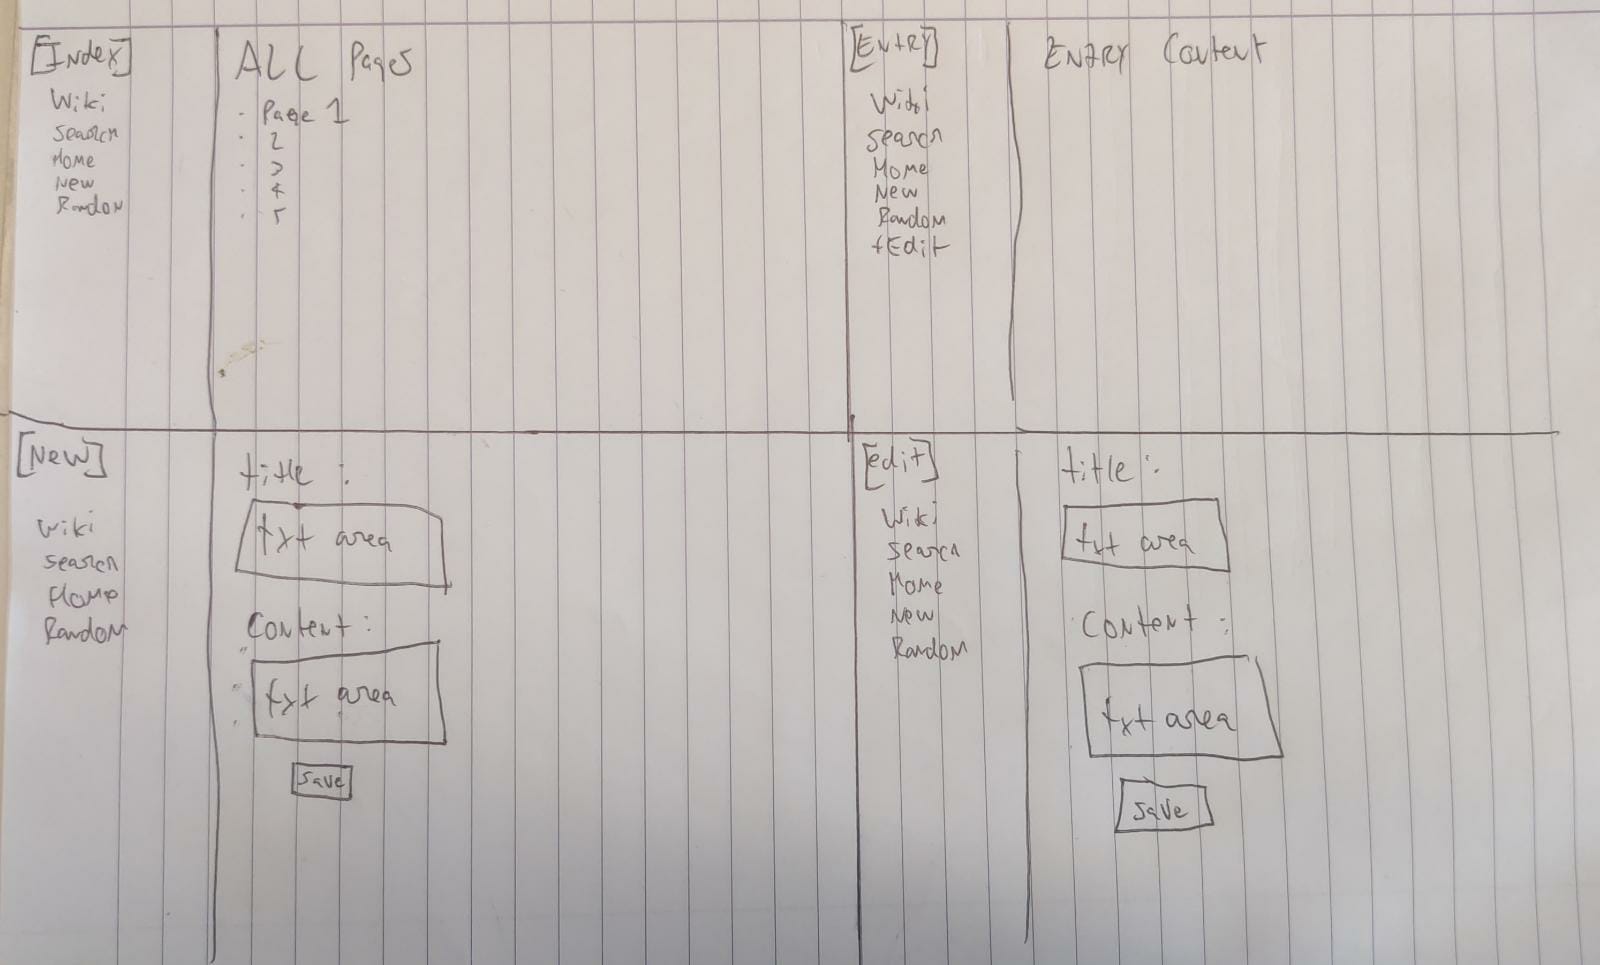 [Index]
Wiki
Search
Home
New
Random
ALL Pages
· Page 1
· 2
· 3
· 4
· 5
[ENtRY]
Wiki
Search
Home
New
Random
+Edit
ENtRY Content
[New]
Wiki
Search
Home
Random
title :
txt area
Content :
txt area
Save
[edit]
Wiki
Search
Home
New
Random
title :
txt area
Content :
txt area
Save